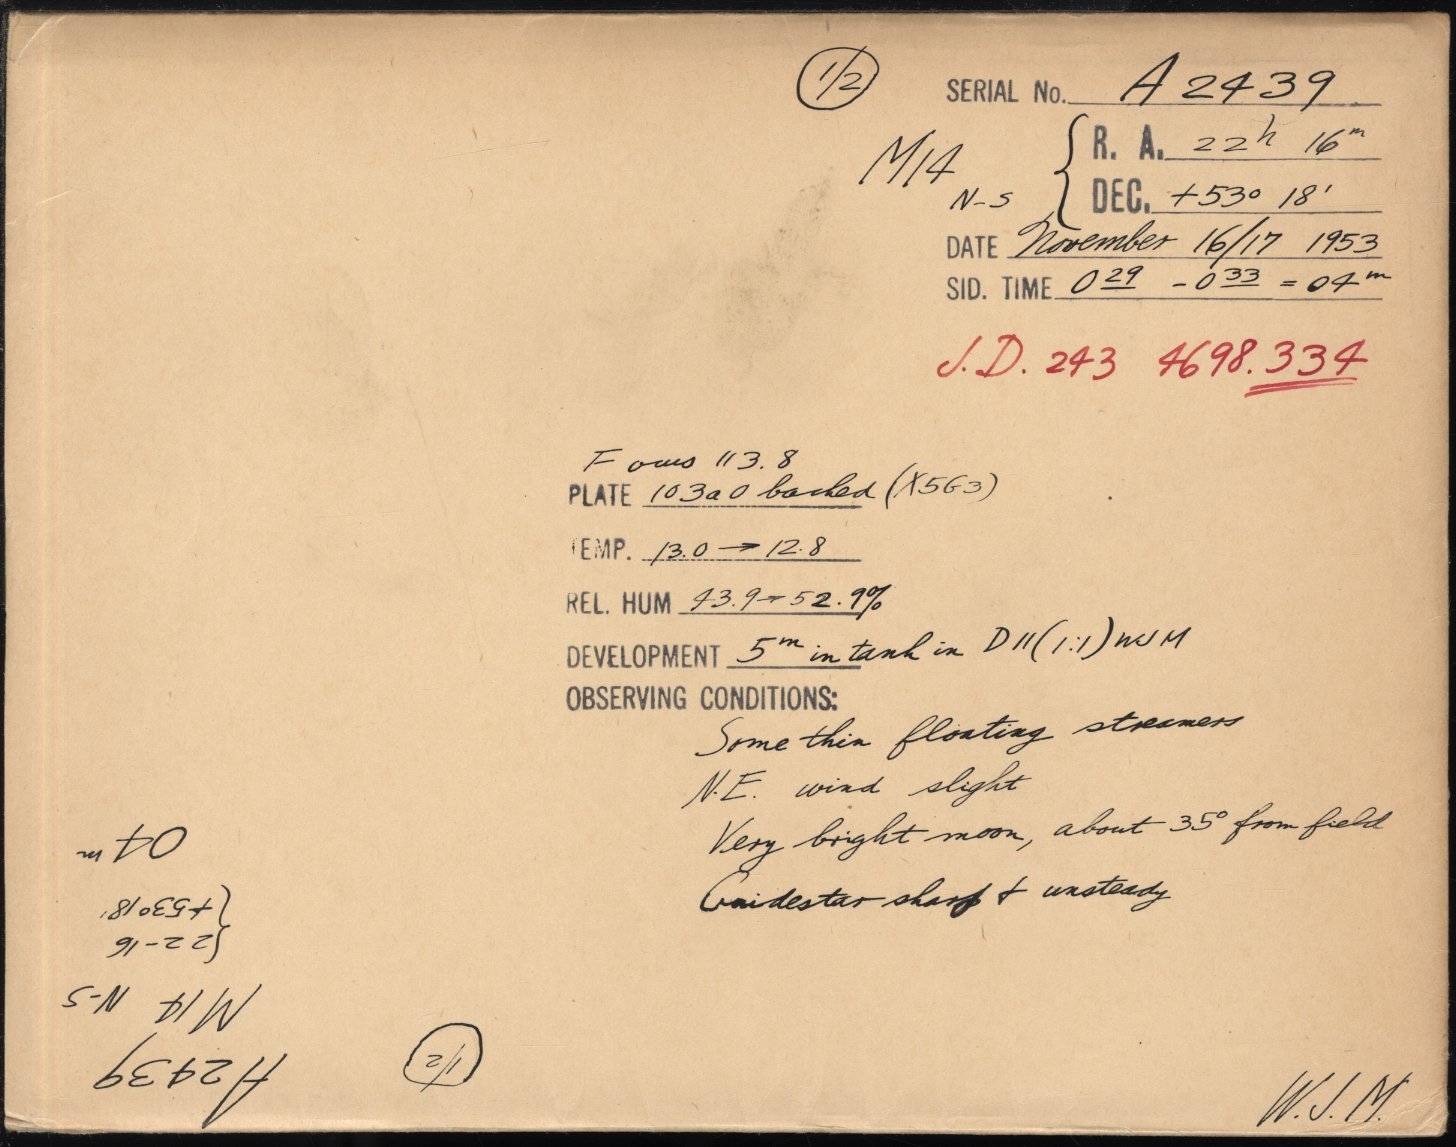 1/2
SERIAL No. A 2439
M14 N-S { R. A. 22h 16m
DEC. +53° 18'
DATE November 16/17 1953
SID. TIME 0 29 - 0 33 = 04m
J.D. 243 4698.334
Focus 113.8
PLATE 103a0 backed (X5G3)
TEMP. 13.0 → 12.8
REL. HUM 43.9 → 52.9%
DEVELOPMENT 5m in tank in D11 (1:1) WJM
OBSERVING CONDITIONS:
Some thin floating streamers
N.E. wind slight
Very bright moon, about 35° from field
Guidestar sharp & unsteady
W.J.M.
1/2
A2439
M14 N-S
{22-16
{+53°18'
04m